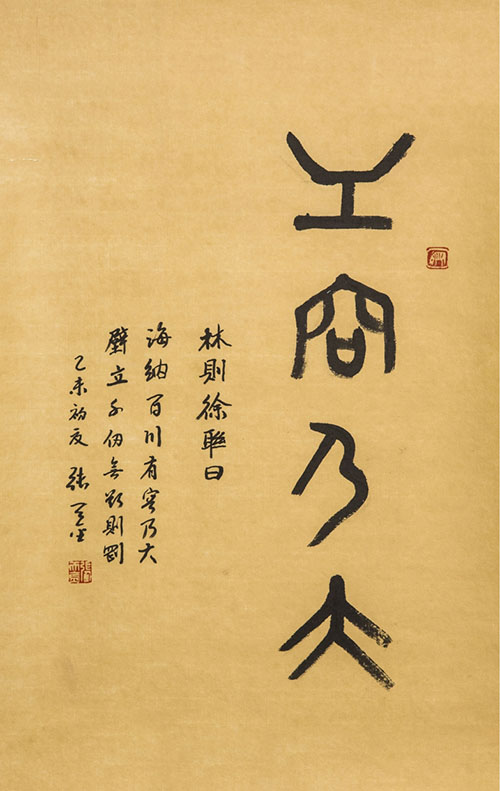 有容乃大
林則徐聯曰
海納百川有容乃大
壁立千仞無欲則剛
乙未初夏 張